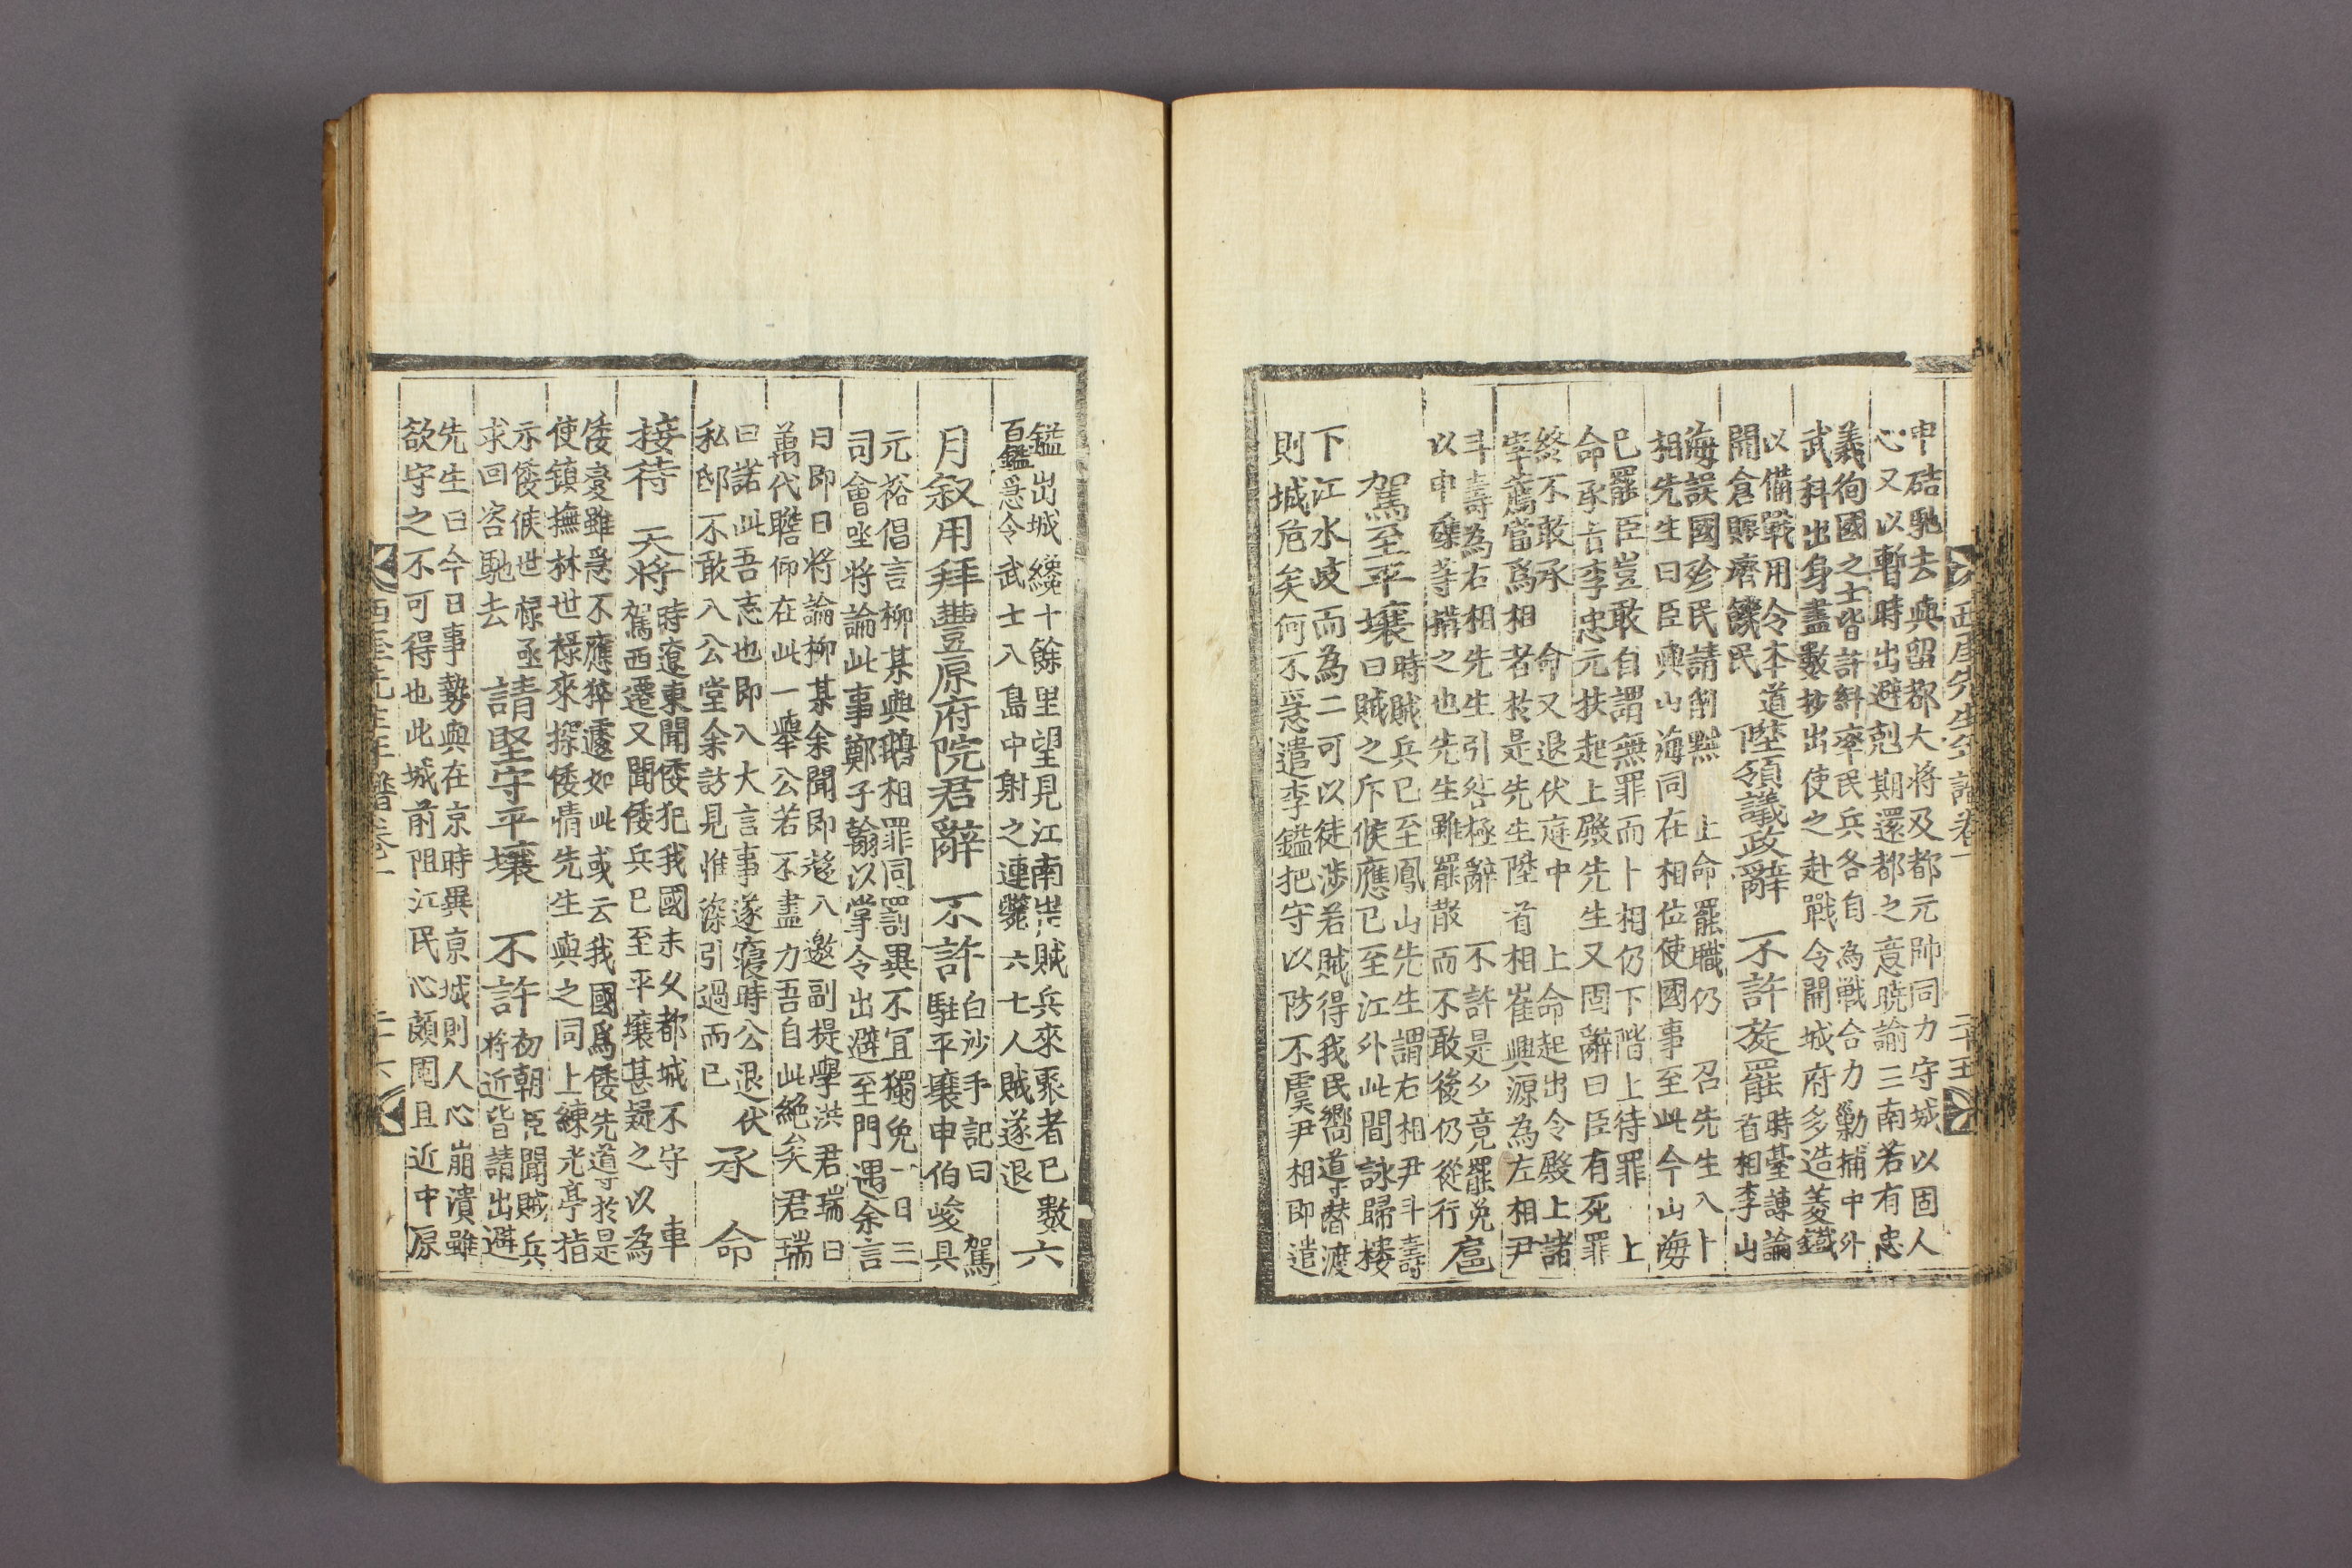 申硈馳去與留都大將及都元帥同力守城以固人
心又以暫時出避剋期還都之意曉諭三南若有忠
義徇國之士皆許糾率民兵各自為戰合力勦捕中外
武科出身盡數抄出使之赴戰令開城府多造菱鐵
以備戰用令本道
開倉賑濟饑民
陞領議政辭 不許旋罷
時臺諫論
首相李山
海誤國殄民請削黜 上命罷職仍 召先生入卜
相先生曰臣與山海同在相位使國事至此今山海
已罷臣豈敢自謂無罪而卜相仍下階上待罪 上
命承旨李忠元扶起上殿先生又固辭曰臣有死罪
終不敢承 命又退伏庭中 上命起出令殿上諸
宰薦當爲相者於是先生陞首相崔興源為左相尹
斗壽為右相先生引咎極辭 不許是夕竟罷兌
以申磼等搆之也先生雖罷散而不敢後仍從行
扈
駕至平壤
時賊兵已至鳳山先生謂右相尹斗壽
曰賊之斥候應已至江外此間詠歸樓
下江水歧而為二可以徒涉若賊得我民嚮導替渡
則城危矣何不急遣李鎰把守以防不虞尹相即遣
西厓先生年譜卷一 二十五
鎰出城纔十餘里望見江南岸賊兵來聚者已數
百鎰急令武士入島中射之連斃六七人賊遂退
六
月叙用拜豐原府院君辭 不許
白沙手記曰 駕
駐平壤申伯峻具
元裕倡言柳某與鵝相罪同罰異不宜獨免一日三
司會坐將論此事鄭子翰以掌令出避至門遇余言
曰即日將論柳某余聞即趍入邀副提學洪君瑞曰
萬代瞻仰在此一舉公若不盡力吾自此絕矣君瑞
曰諾此吾志也即入大言事遂寢時公退伏
私邸不敢入公堂余訪見惟深引過而已
承 命
接待 天將
時遼東聞倭犯我國未久都城不守 車
駕西遷又聞倭兵已至平壤甚疑之以為
倭變雖急不應猝遽如此或云我國爲倭先導於是
使鎮撫林世祿來探倭情先生與之同上練光亭指
示倭候世祿亟
求回咨馳去
請堅守平壤 不許
初朝臣聞賊兵
將近皆請出避
先生曰今日事勢與在京時異京城則人心崩潰雖
欲守之不可得也此城前阻江民心頗固且近中原
西厓先生年譜卷一 二十六